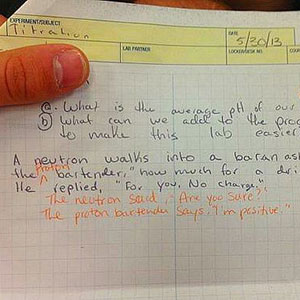 EXPERIMENT/SUBJECT
Titration
DATE
5/20/13
LAB PARTNER
LOCKER/DESK NO.
a. What is the average pH of our
b what can we add to the
to make this lab easier
A neutron walks into a bar an as
the proton bartender, "how much for a
He replied, "For you, No charge."
The neutron said, "Are you sure?"
The proton bartender says, "I'm positive."